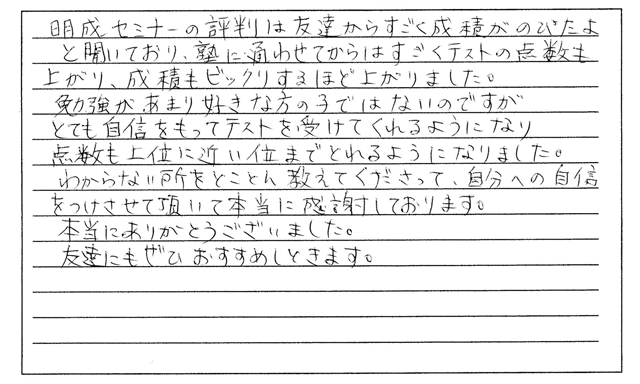 明成セミナーの評判は友達からすごく成積がのびたよ
と聞いており、塾に通わせてからはすごくテストの点数も
上がり、成積もビックリするほど上がりました。
勉強があまり好きな方の子ではないのですが
とても自信をもってテストを受けてくれるようになり
点数も上位に近い位までとれるようになりました。
わからない所をとことん教えてくださって、自分への自信
をつけさせて頂いて本当に感謝しております。
本当にありがとうございました。
友達にもぜひおすすめしときます。